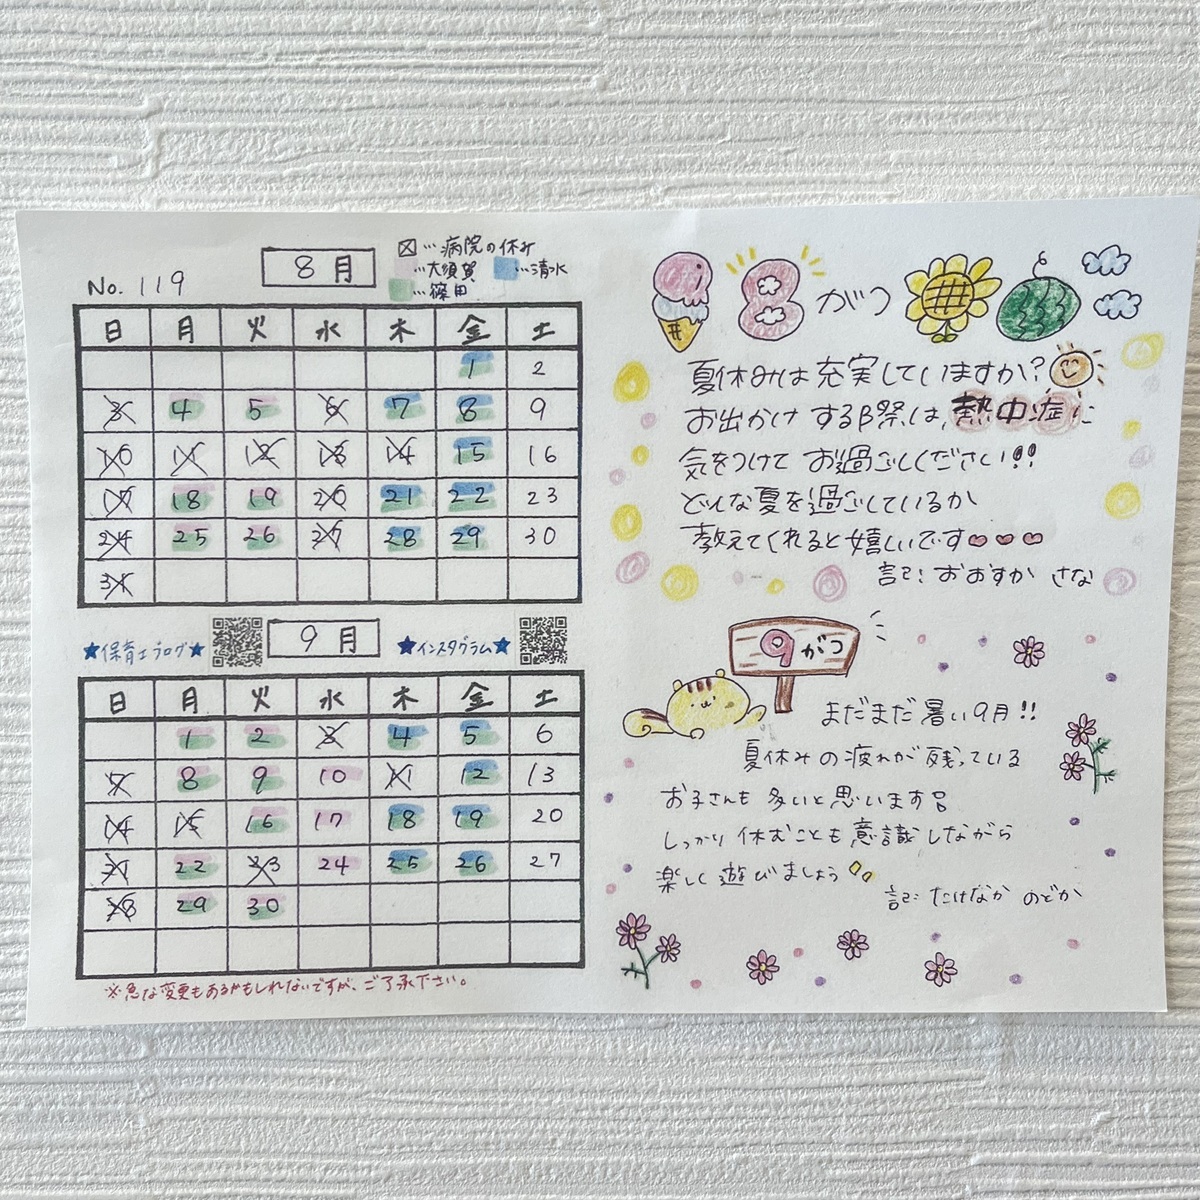 No. 119
8月
☒…病院の休み
…大須賀 …清水
…篠田
日 月 火 水 木 金 土
1 2
3 4 5 6 7 8 9
10 11 12 13 14 15 16
17 18 19 20 21 22 23
24 25 26 27 28 29 30
31
★保育士ブログ★
9月
★インスタグラム★
日 月 火 水 木 金 土
1 2 3 4 5 6
7 8 9 10 11 12 13
14 15 16 17 18 19 20
21 22 23 24 25 26 27
28 29 30
※急な変更もあるかもしれないですが、ご了承下さい。
8がつ
夏休みは充実していますか?
お出かけする際は、熱中症に
気をつけてお過ごしください!!
どんな夏を過ごしているか
教えてくれると嬉しいです♡♡♡
記:おおすか さな
9がつ
まだまだ暑い9月!!
夏休みの疲れが残っている
お子さんも多いと思います
しっかり休むことも意識しながら
楽しく遊びましょう
記:たけなか のどか